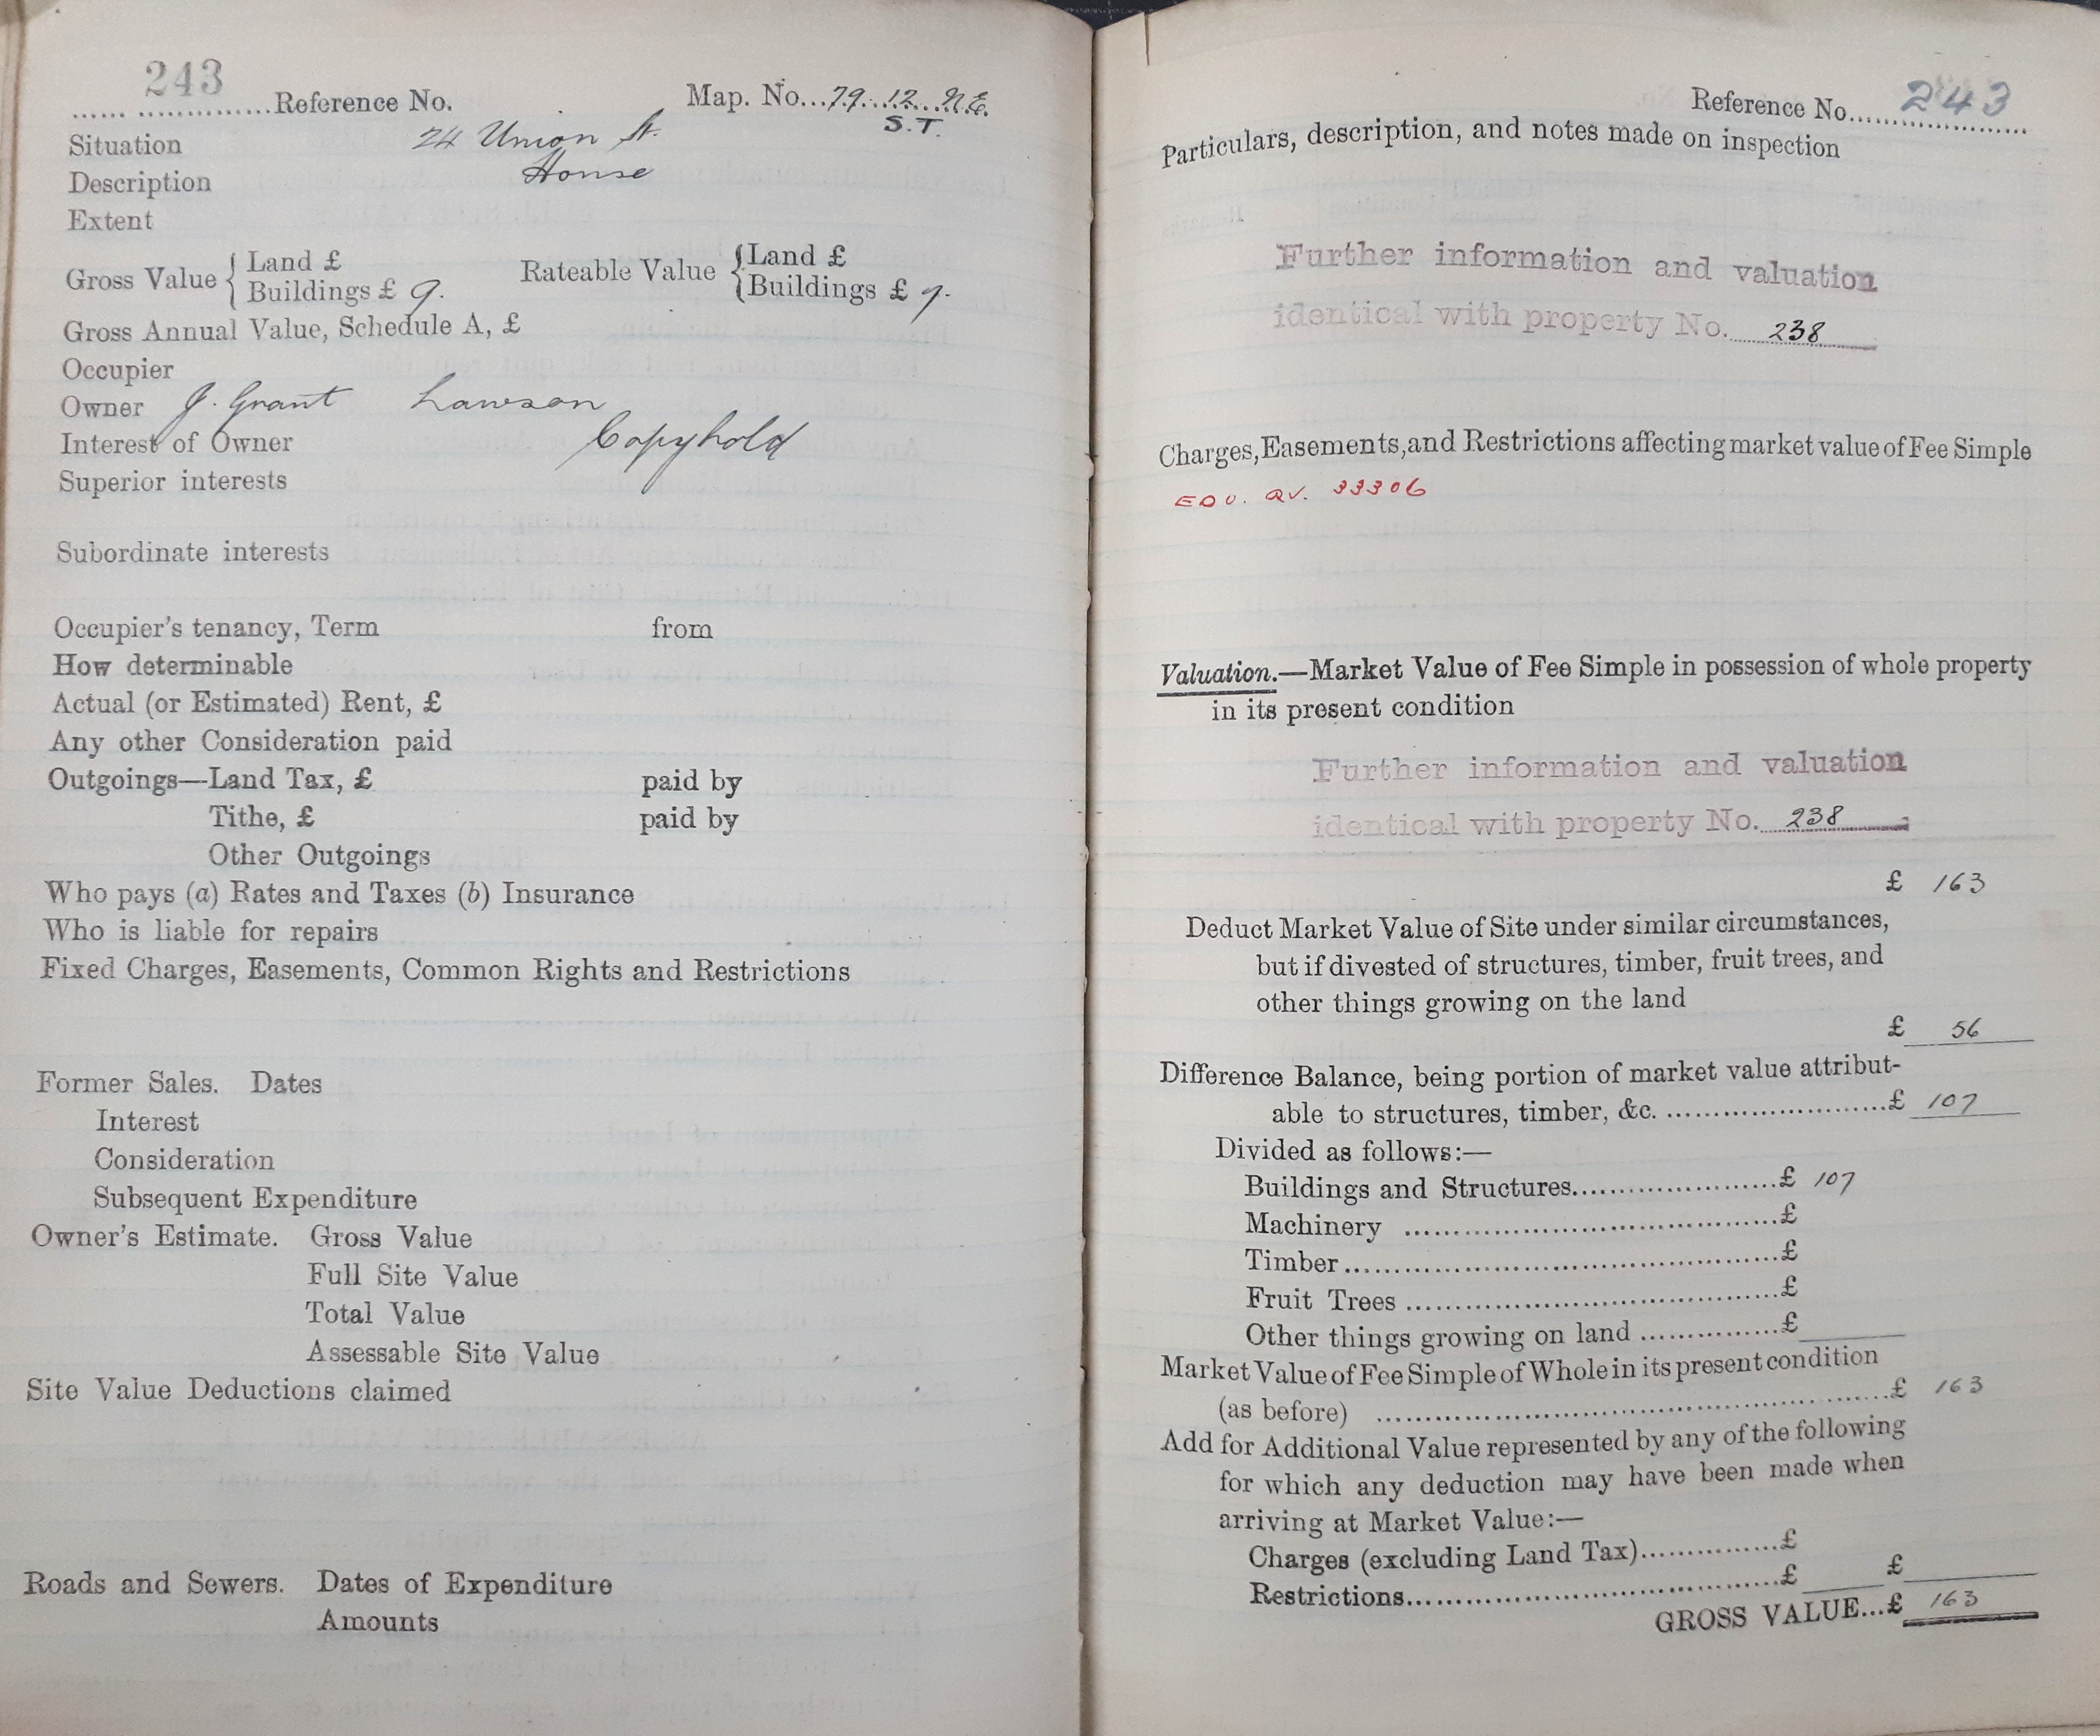 243
Reference No. Map. No...79.12.N.E.
S.T.
Situation 24 Union St.
Description House
Extent
Gross Value { Land £
Buildings £ 9.
Rateable Value { Land £
Buildings £ 7.
Gross Annual Value, Schedule A, £
Occupier
Owner J. Grant Lawson
Interest of Owner Copyhold
Superior interests
Subordinate interests
Occupier's tenancy, Term from
How determinable
Actual (or Estimated) Rent, £
Any other Consideration paid
Outgoings—Land Tax, £ paid by
Tithe, £ paid by
Other Outgoings
Who pays (a) Rates and Taxes (b) Insurance
Who is liable for repairs
Fixed Charges, Easements, Common Rights and Restrictions
Former Sales. Dates
Interest
Consideration
Subsequent Expenditure
Owner's Estimate. Gross Value
Full Site Value
Total Value
Assessable Site Value
Site Value Deductions claimed
Roads and Sewers. Dates of Expenditure
Amounts
Reference No. 243
Particulars, description, and notes made on inspection
Further information and valuation
identical with property No. 238
Charges, Easements, and Restrictions affecting market value of Fee Simple
33306
Valuation.—Market Value of Fee Simple in possession of whole property
in its present condition
Further information and valuation
identical with property No. 238
£ 163
Deduct Market Value of Site under similar circumstances,
but if divested of structures, timber, fruit trees, and
other things growing on the land
£ 56
Difference Balance, being portion of market value attribut-
able to structures, timber, &c. £ 107
Divided as follows:—
Buildings and Structures £ 107
Machinery £
Timber £
Fruit Trees £
Other things growing on land £
Market Value of Fee Simple of Whole in its present condition
(as before) £ 163
Add for Additional Value represented by any of the following
for which any deduction may have been made when
arriving at Market Value:—
Charges (excluding Land Tax) £
Restrictions £ £
GROSS VALUE...£ 163